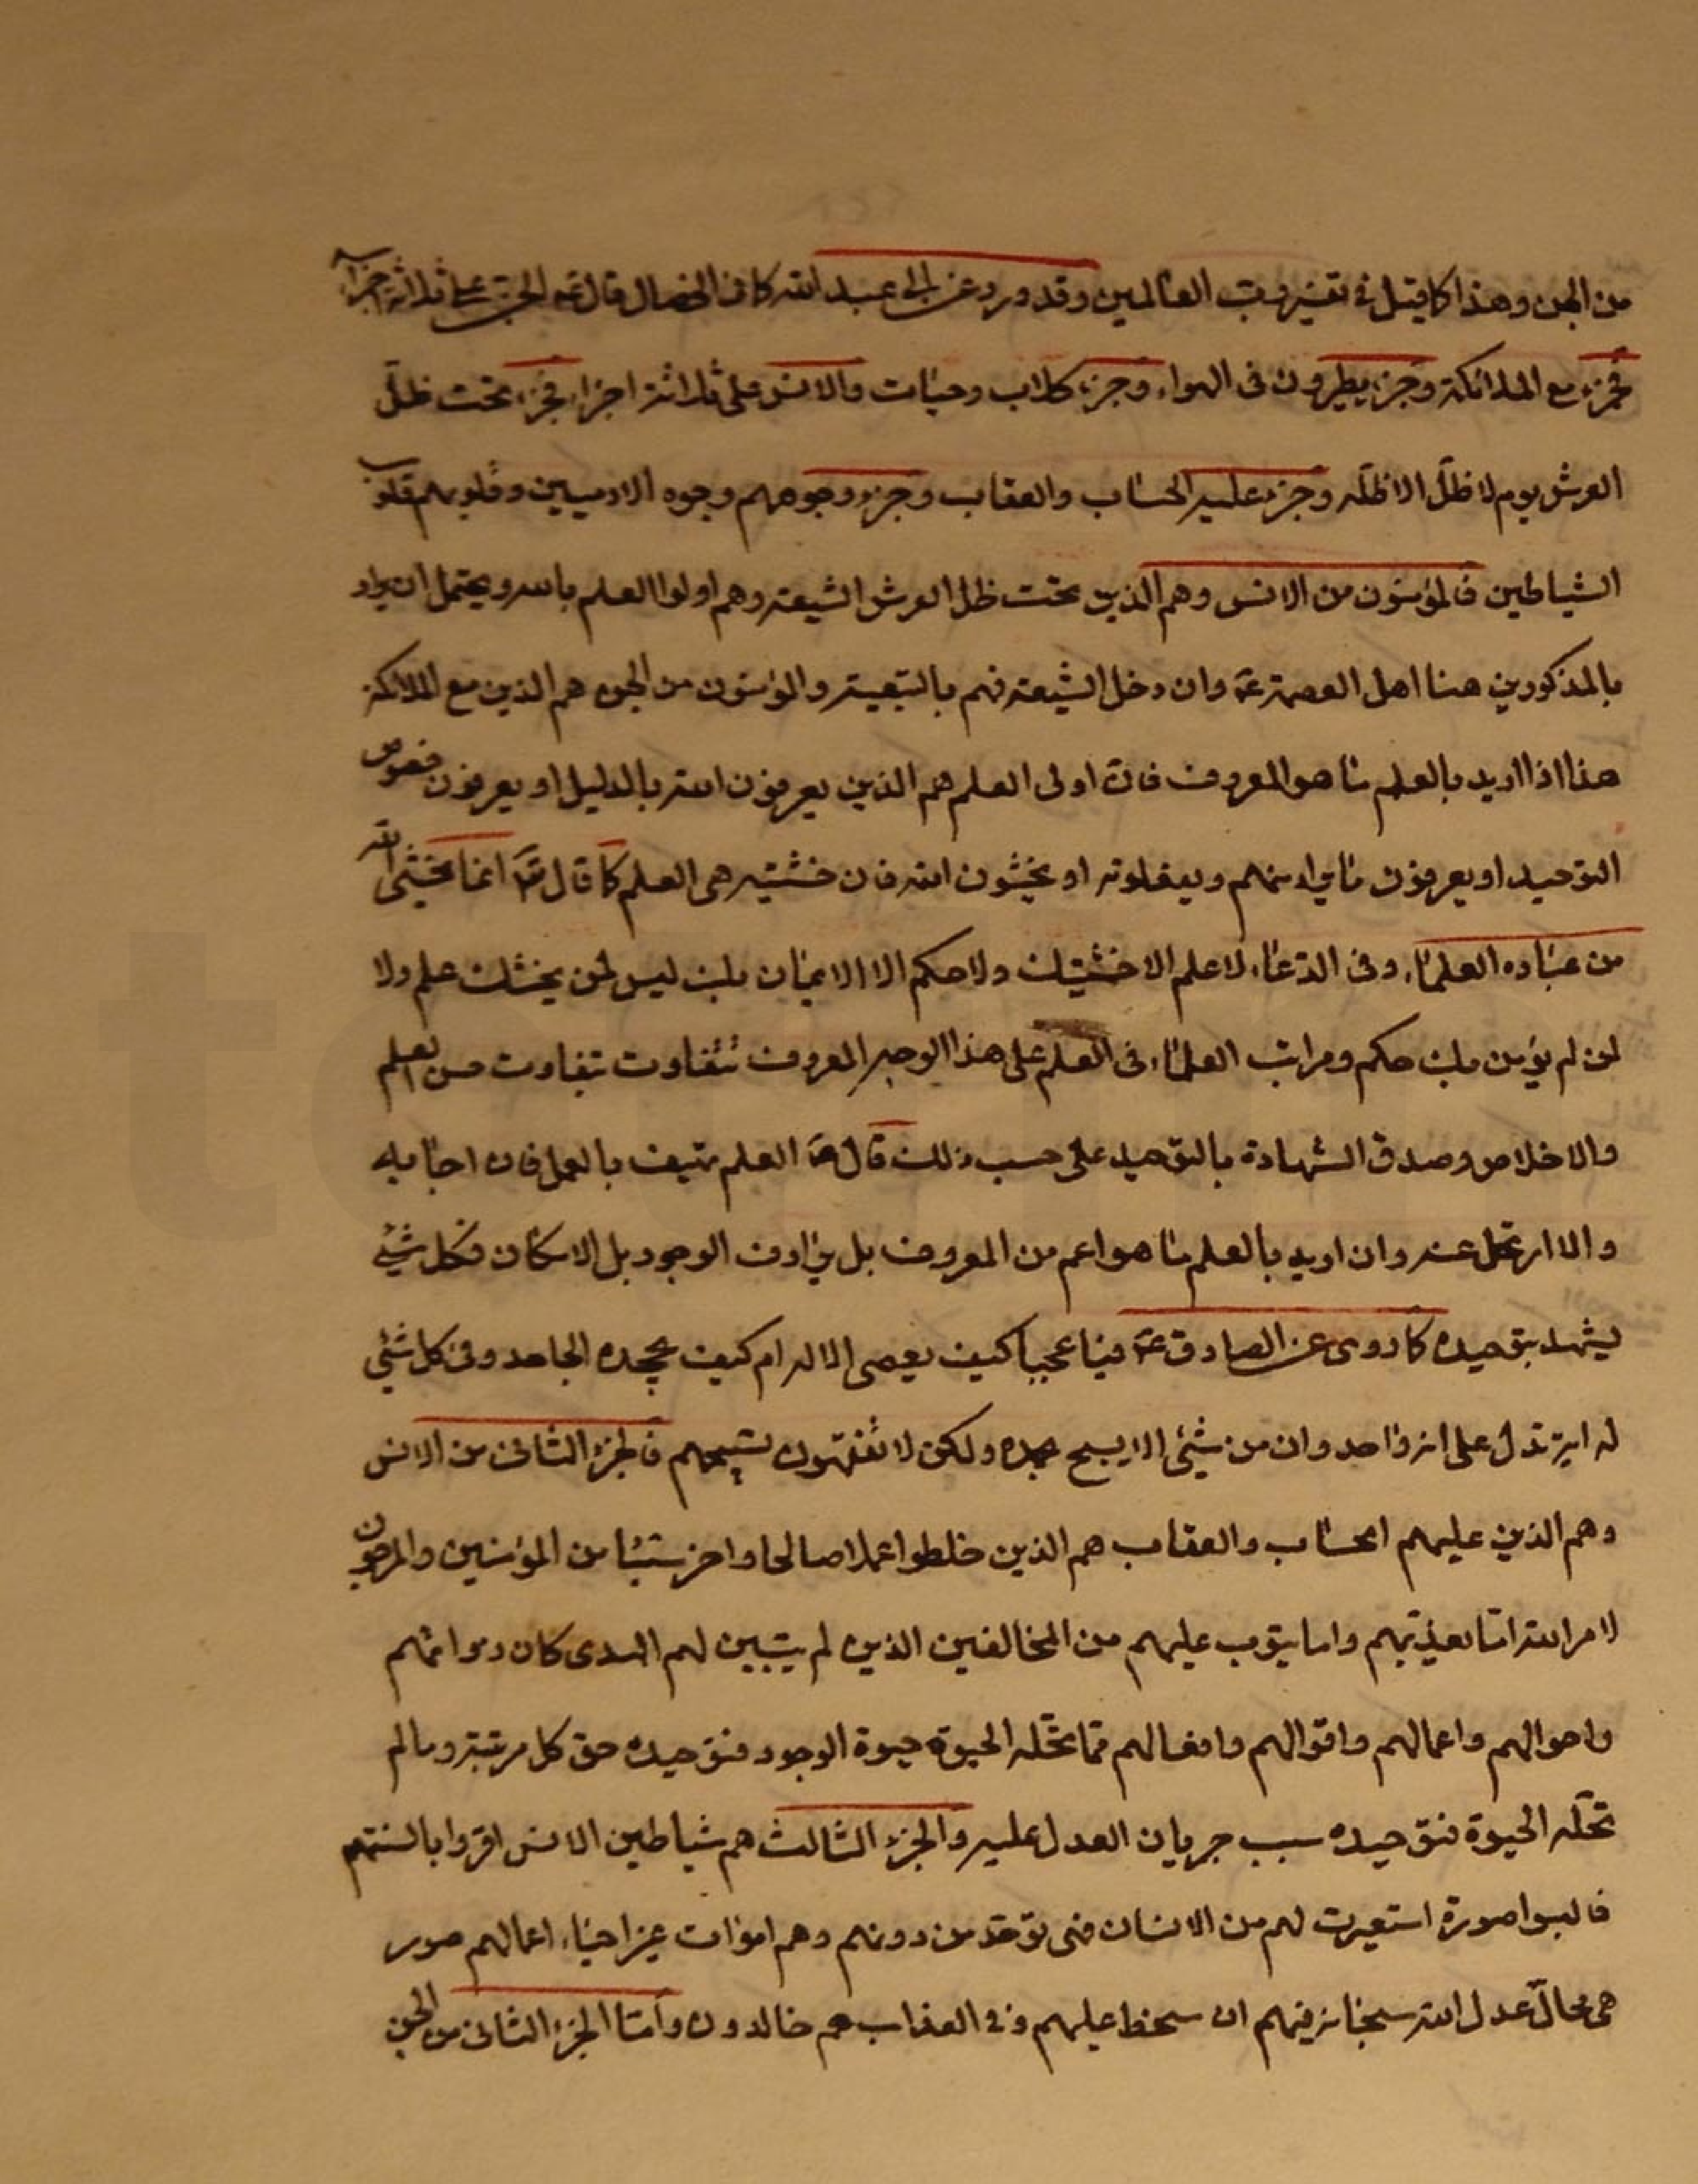 من الجن وهذا كما قيل في تفسير رب العالمين وقد ورد عن ابي عبد الله كما في الخصال قال ع الجن على ثلاثة اجزاء
فجزء مع الملائكة وجزء يطيرون في الهواء وجزء كلاب وحيات والانس على ثلاثة اجزاء فجزء تحت ظل
العرش يوم لا ظل الا ظله وجزء عليه الحساب والعقاب وجزء وجوههم وجوه الادميين وقلوبهم قلوب
الشياطين فالمؤمنون من الانس وهم الذين تحت ظل العرش الشيعة وهم اولوا العلم بالله ويحتمل ان يراد
بالمذكورين هنا اهل العصمة ع وان دخل الشيعة فهم بالتبعية والمؤمنون من الجن هم الذين مع الملائكة
هذا اذا اريد بالعلم ما هو المعروف فان اولى العلم هم الذين يعرفون الله بالدليل او يعرفون
التوحيد او يعرفون ما يراد منهم ويفعلونه او يخشون الله فان خشيته هى العلم كما قال تع انما يخشى الله
من عباده العلماء وفى الدعاء لا علم الا خشيتك ولا حكم الا الايمان بك ليس لمن يخشك علم ولا
لمن لم يؤمن بك حكم ومراتب العلماء فى العلم على هذا الوجه المعروف تتفاوت تفاوت حسن العلم
والاخلاص وصدق الشهادة بالتوحيد على حسب ذلك قال ع العلم يهتف بالعمل فان اجابه
والا ارتحل عنه وان اريد بالعلم ما هو اعم من المعروف بل يرادف الوجود بل الامكان فكل شيء
يشهد بتوحيده كما روى عن الصادق ع فيا عجبا كيف يعصى الاله ام كيف يجحده الجاحد وفى كل شئي
له اية تدل على انه واحد وان من شئي الا يسبح بحمده ولكن لا تفقهون تسبيحهم فالجزء الثانى من الانس
وهم الذين عليهم الحساب والعقاب هم الذين خلطوا عملا صالحا واخر سيئا من المؤمنين والمرجون
لامر الله اما يعذبهم واما يتوب عليهم من المخالفين الذين لم يتبين لهم الهدى كان ذواتهم
واحوالهم واعمالهم واقوالهم وافعالهم مما تحله الحيوة حيوة الوجود فتوحيده حق كل مرتبة وما لم
تحله الحيوة فتوحيده سبب جريان العدل عليه والجزء الثالث هم شياطين الانس اقروا بالسنتهم
فالبسوا صورة استعيرت لهم من الانسان فهى توحد من دونهم وهم اموات غير احياء اعمالهم صور
هى محال عدل الله سبحانه فيهم ان سخط عليهم وفى العذاب هم خالدون واما الجزء الثانى من الجن